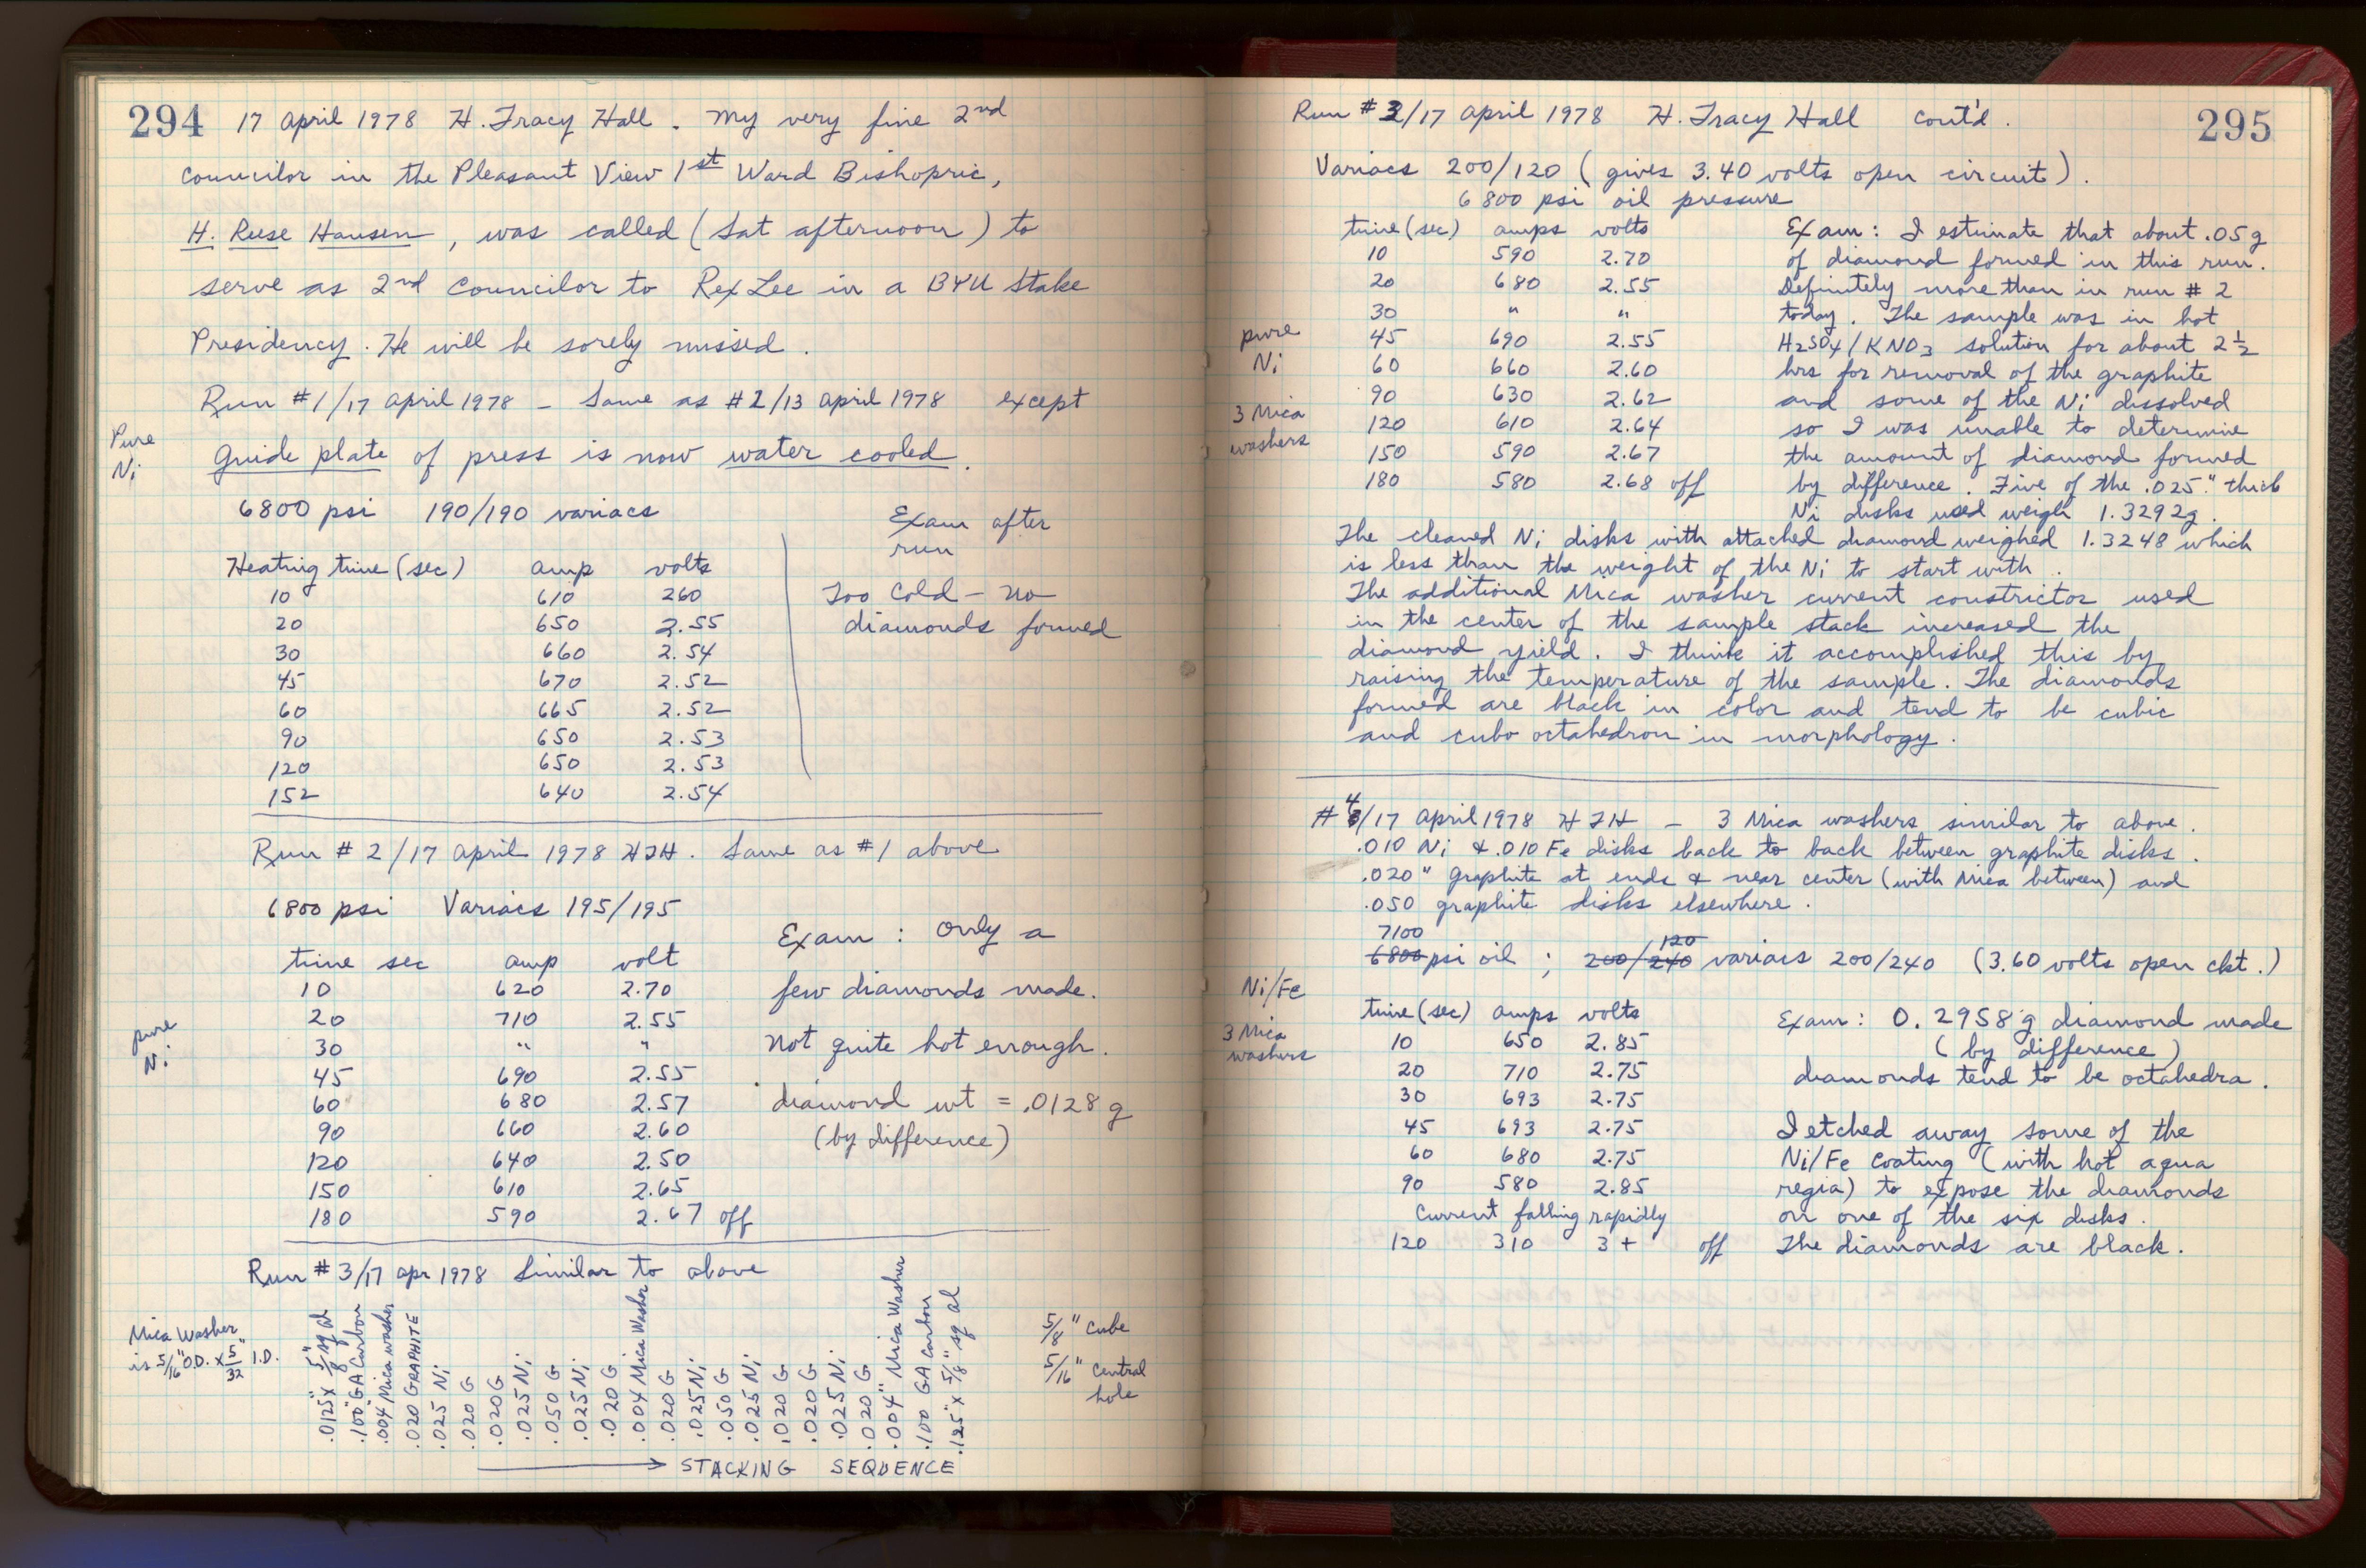 294 17 April 1978 H. Tracy Hall. My very fine 2nd
councilor in the Pleasant View 1st Ward Bishopric,
H. Reese Hansen, was called (Sat afternoon) to
serve as 2nd councilor to Rex Lee in a BYU Stake
Presidency. He will be sorely missed.
Run #1/17 April 1978 – Same as #2/13 April 1978 except
Pure
Ni
guide plate of press is now water cooled.
6800 psi 190/190 variacs
Exam after
run
Heating time (sec) amp volts
Too cold – no
diamonds formed
10 610 260
20 650 2.55
30 660 2.54
45 670 2.52
60 665 2.52
90 650 2.53
120 650 2.53
152 640 2.54
Run # 2/17 April 1978 HTH. Same as #1 above
6800 psi Variacs 195/195
Exam : only a
few diamonds made.
Not quite hot enough.
diamond wt = .0128 g
(by difference)
time sec amp volt
10 620 2.70
20 710 2.55
30 " "
45 690 2.55
60 680 2.57
90 660 2.60
120 640 2.50
150 610 2.65
180 590 2.67 off
pure
Ni
Run # 3/17 apr 1978 Similar to above
Mica Washer
is 5/16" O.D. x 5/32" I.D.
.0125" x 5/8" sq al
.100" GA Carbon
.004 Mica washer
.020 GRAPHITE
.025 Ni
.020 G
.020 G
.025 Ni
.050 G
.025 Ni
.020 G
.004 Mica Washer
.020 G
.025 Ni
.050 G
.025 Ni
.020 G
.020 G
.025 Ni
.020 G
.004" Mica Washer
.100 GA Carbon
.125" x 5/8" sq al
5/8" cube
5/16" central
hole
→ STACKING SEQUENCE
Run # 3/17 April 1978 H. Tracy Hall cont'd. 295
Variacs 200/120 (gives 3.40 volts open circuit).
6800 psi oil pressure
time (sec) amps volts
10 590 2.70
20 680 2.55
30 " "
45 690 2.55
60 660 2.60
90 630 2.62
120 610 2.64
150 590 2.67
180 580 2.68 off
pure
Ni
3 Mica
washers
Exam : I estimate that about .05 g
of diamond formed in this run.
Definitely more than in run # 2
today. The sample was in hot
H2SO4/KNO3 solution for about 2 1/2
hrs for removal of the graphite
and some of the Ni dissolved
so I was unable to determine
the amount of diamond formed
by difference. Five of the .025" thick
Ni disks used weigh 1.3292g.
The cleaned Ni disks with attached diamond weighed 1.3248 which
is less than the weight of the Ni to start with.
The additional Mica washer current constrictor used
in the center of the sample stack increased the
diamond yield. I think it accomplished this by
raising the temperature of the sample. The diamonds
formed are black in color and tend to be cubic
and cubo octahedron in morphology.
# 4/17 April 1978 HTH – 3 Mica washers similar to above.
.010 Ni & .010 Fe disks back to back between graphite disks.
.020" graphite at ends & near center (with Mica between) and
.050 graphite disks elsewhere.
7100
6800 psi oil ; 200/240 120 variacs 200/240 (3.60 volts open ckt.)
Ni/Fe
3 Mica
washers
time (sec) amps volts
10 650 2.85
20 710 2.75
30 693 2.75
45 693 2.75
60 680 2.75
90 580 2.85
Current falling rapidly
120 310 3+ off
Exam : 0.2958 g diamond made
(by difference)
diamonds tend to be octahedra.
I etched away some of the
Ni/Fe coating (with hot aqua
regia) to expose the diamonds
on one of the six disks.
The diamonds are black.